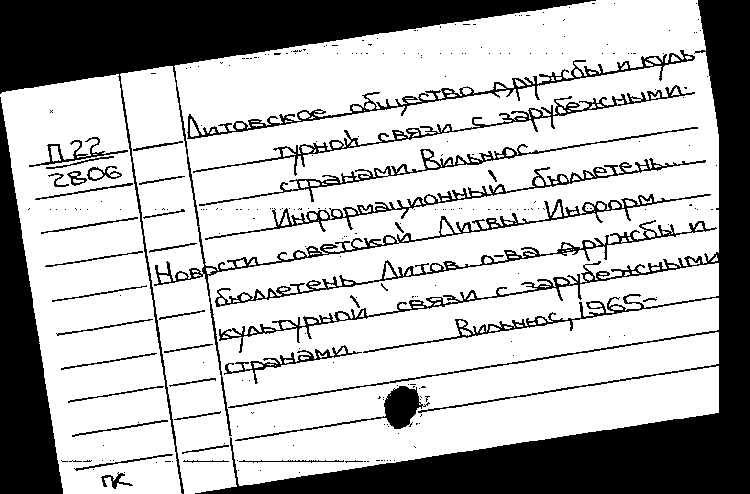 П 22
2806
Литовское общество дружбы и куль-
турной связи с зарубежными
странами. Вильнюс.
Информационный бюллетень...
Новости советской Литвы. Информ.
бюллетень Литов. о-ва дружбы и
культурной связи с зарубежными
странами. Вильнюс, 1965-
ПК